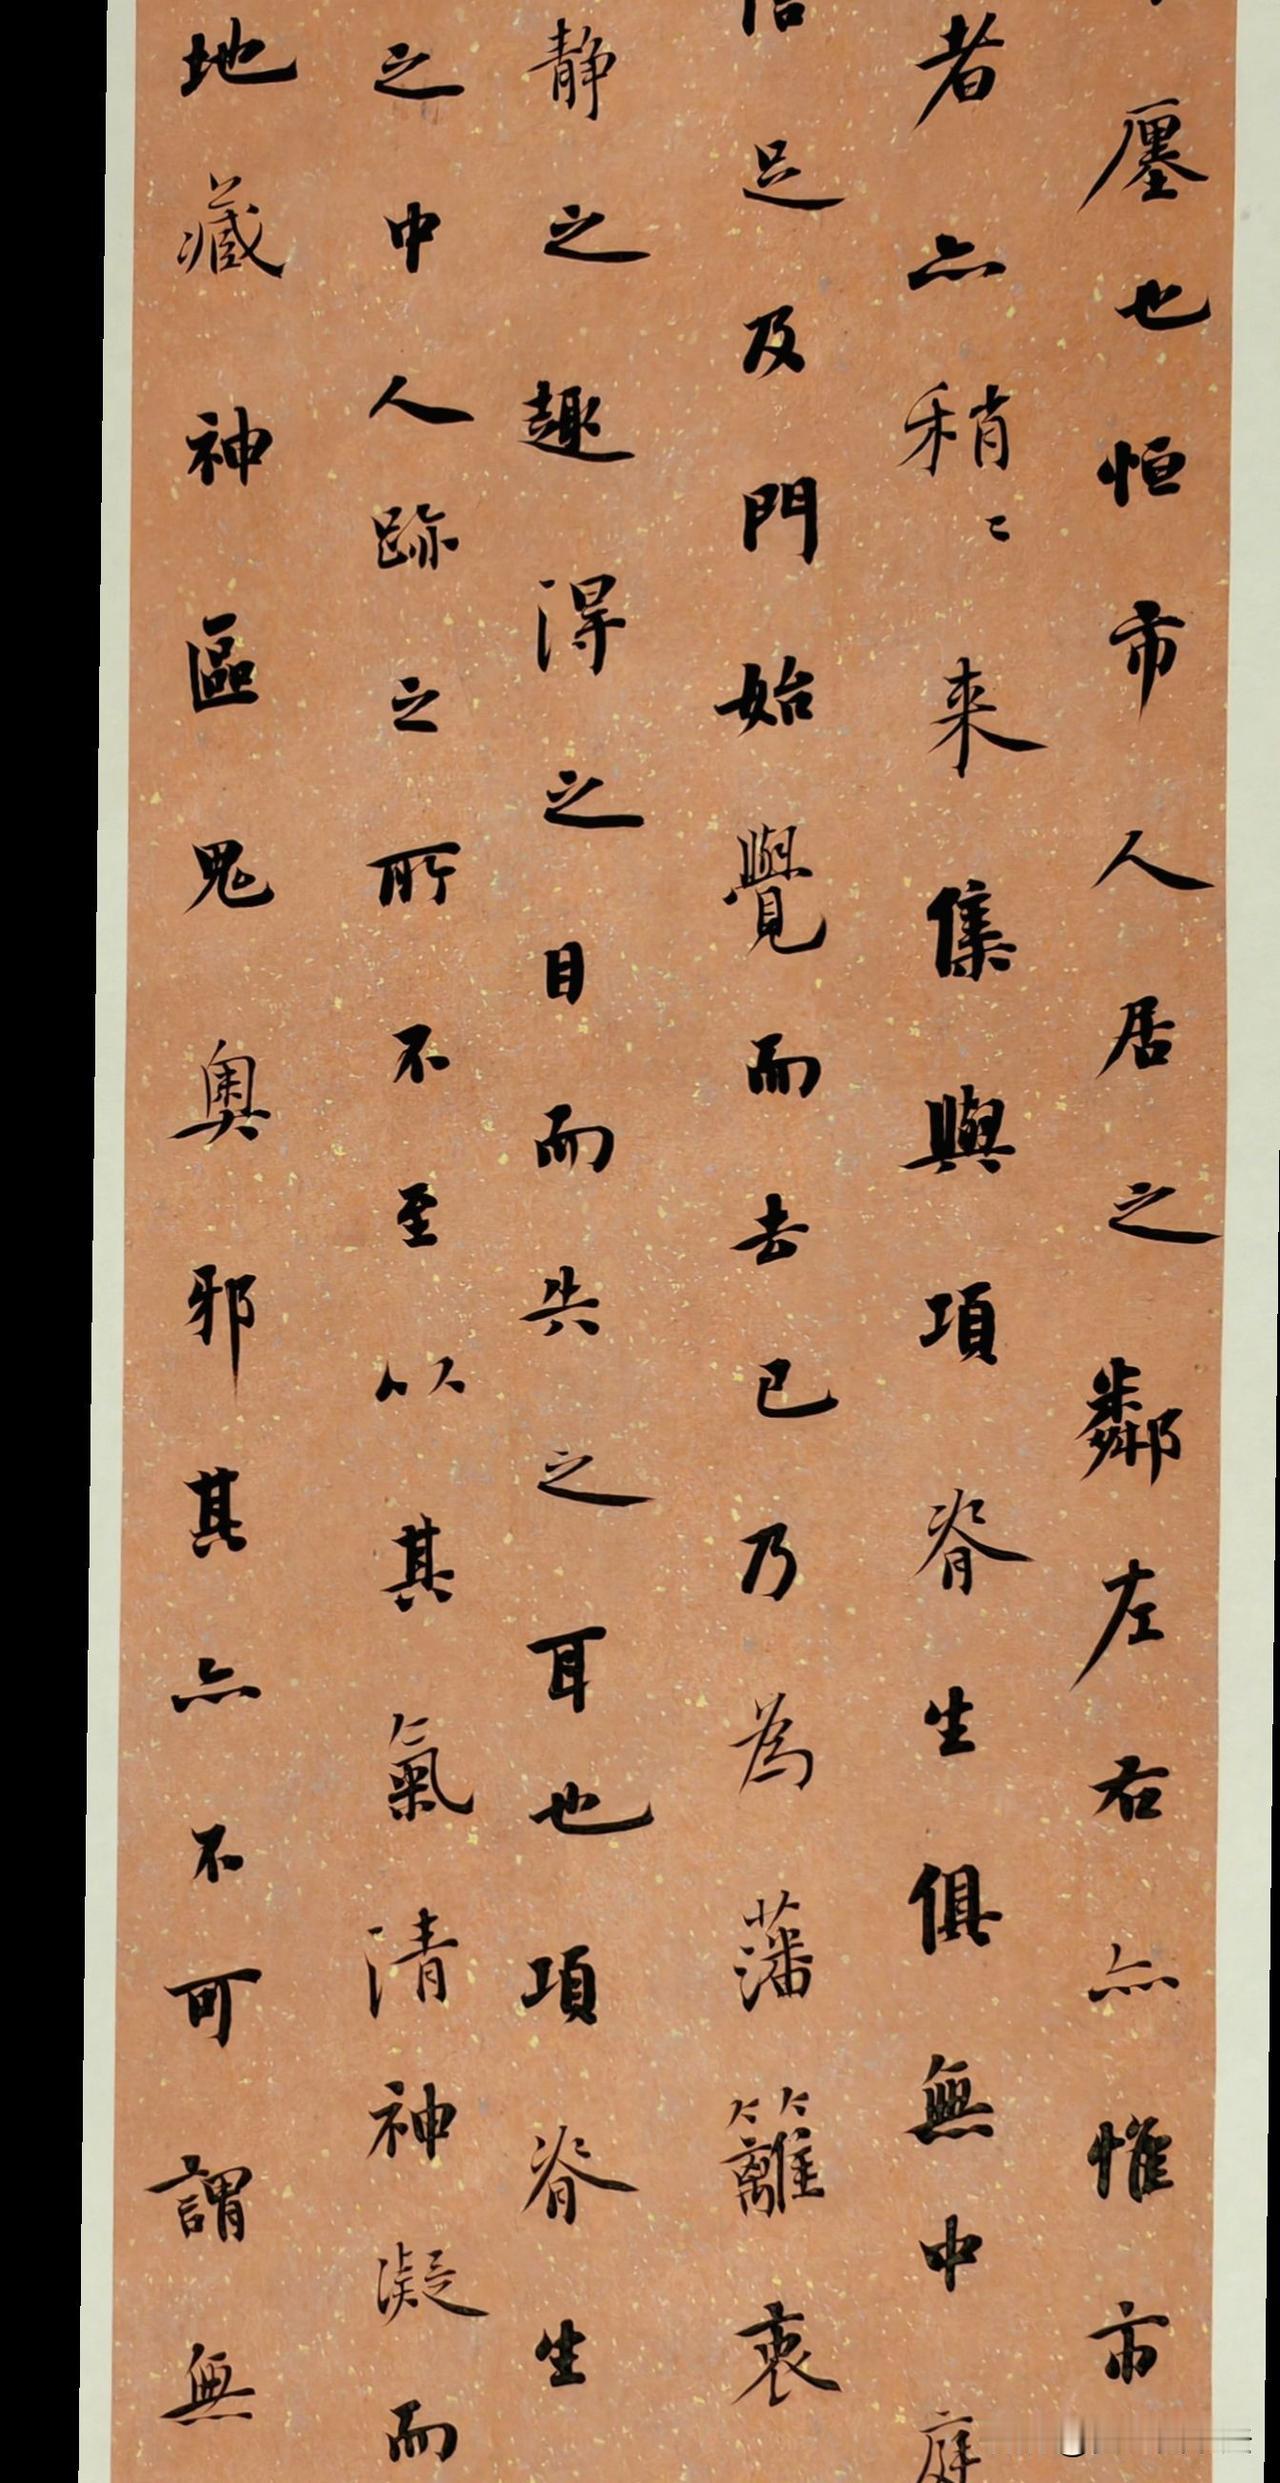 廛也恒市人居之鄰左右亦惟市
者亦稍〻来集與項脊生俱無中庭
足及門始覺而去已乃為藩籬衷
静之趣得之目而失之耳也項脊生
之中人跡之所不至以其氣清神凝而
地藏神區鬼奥邪其亦不可謂無